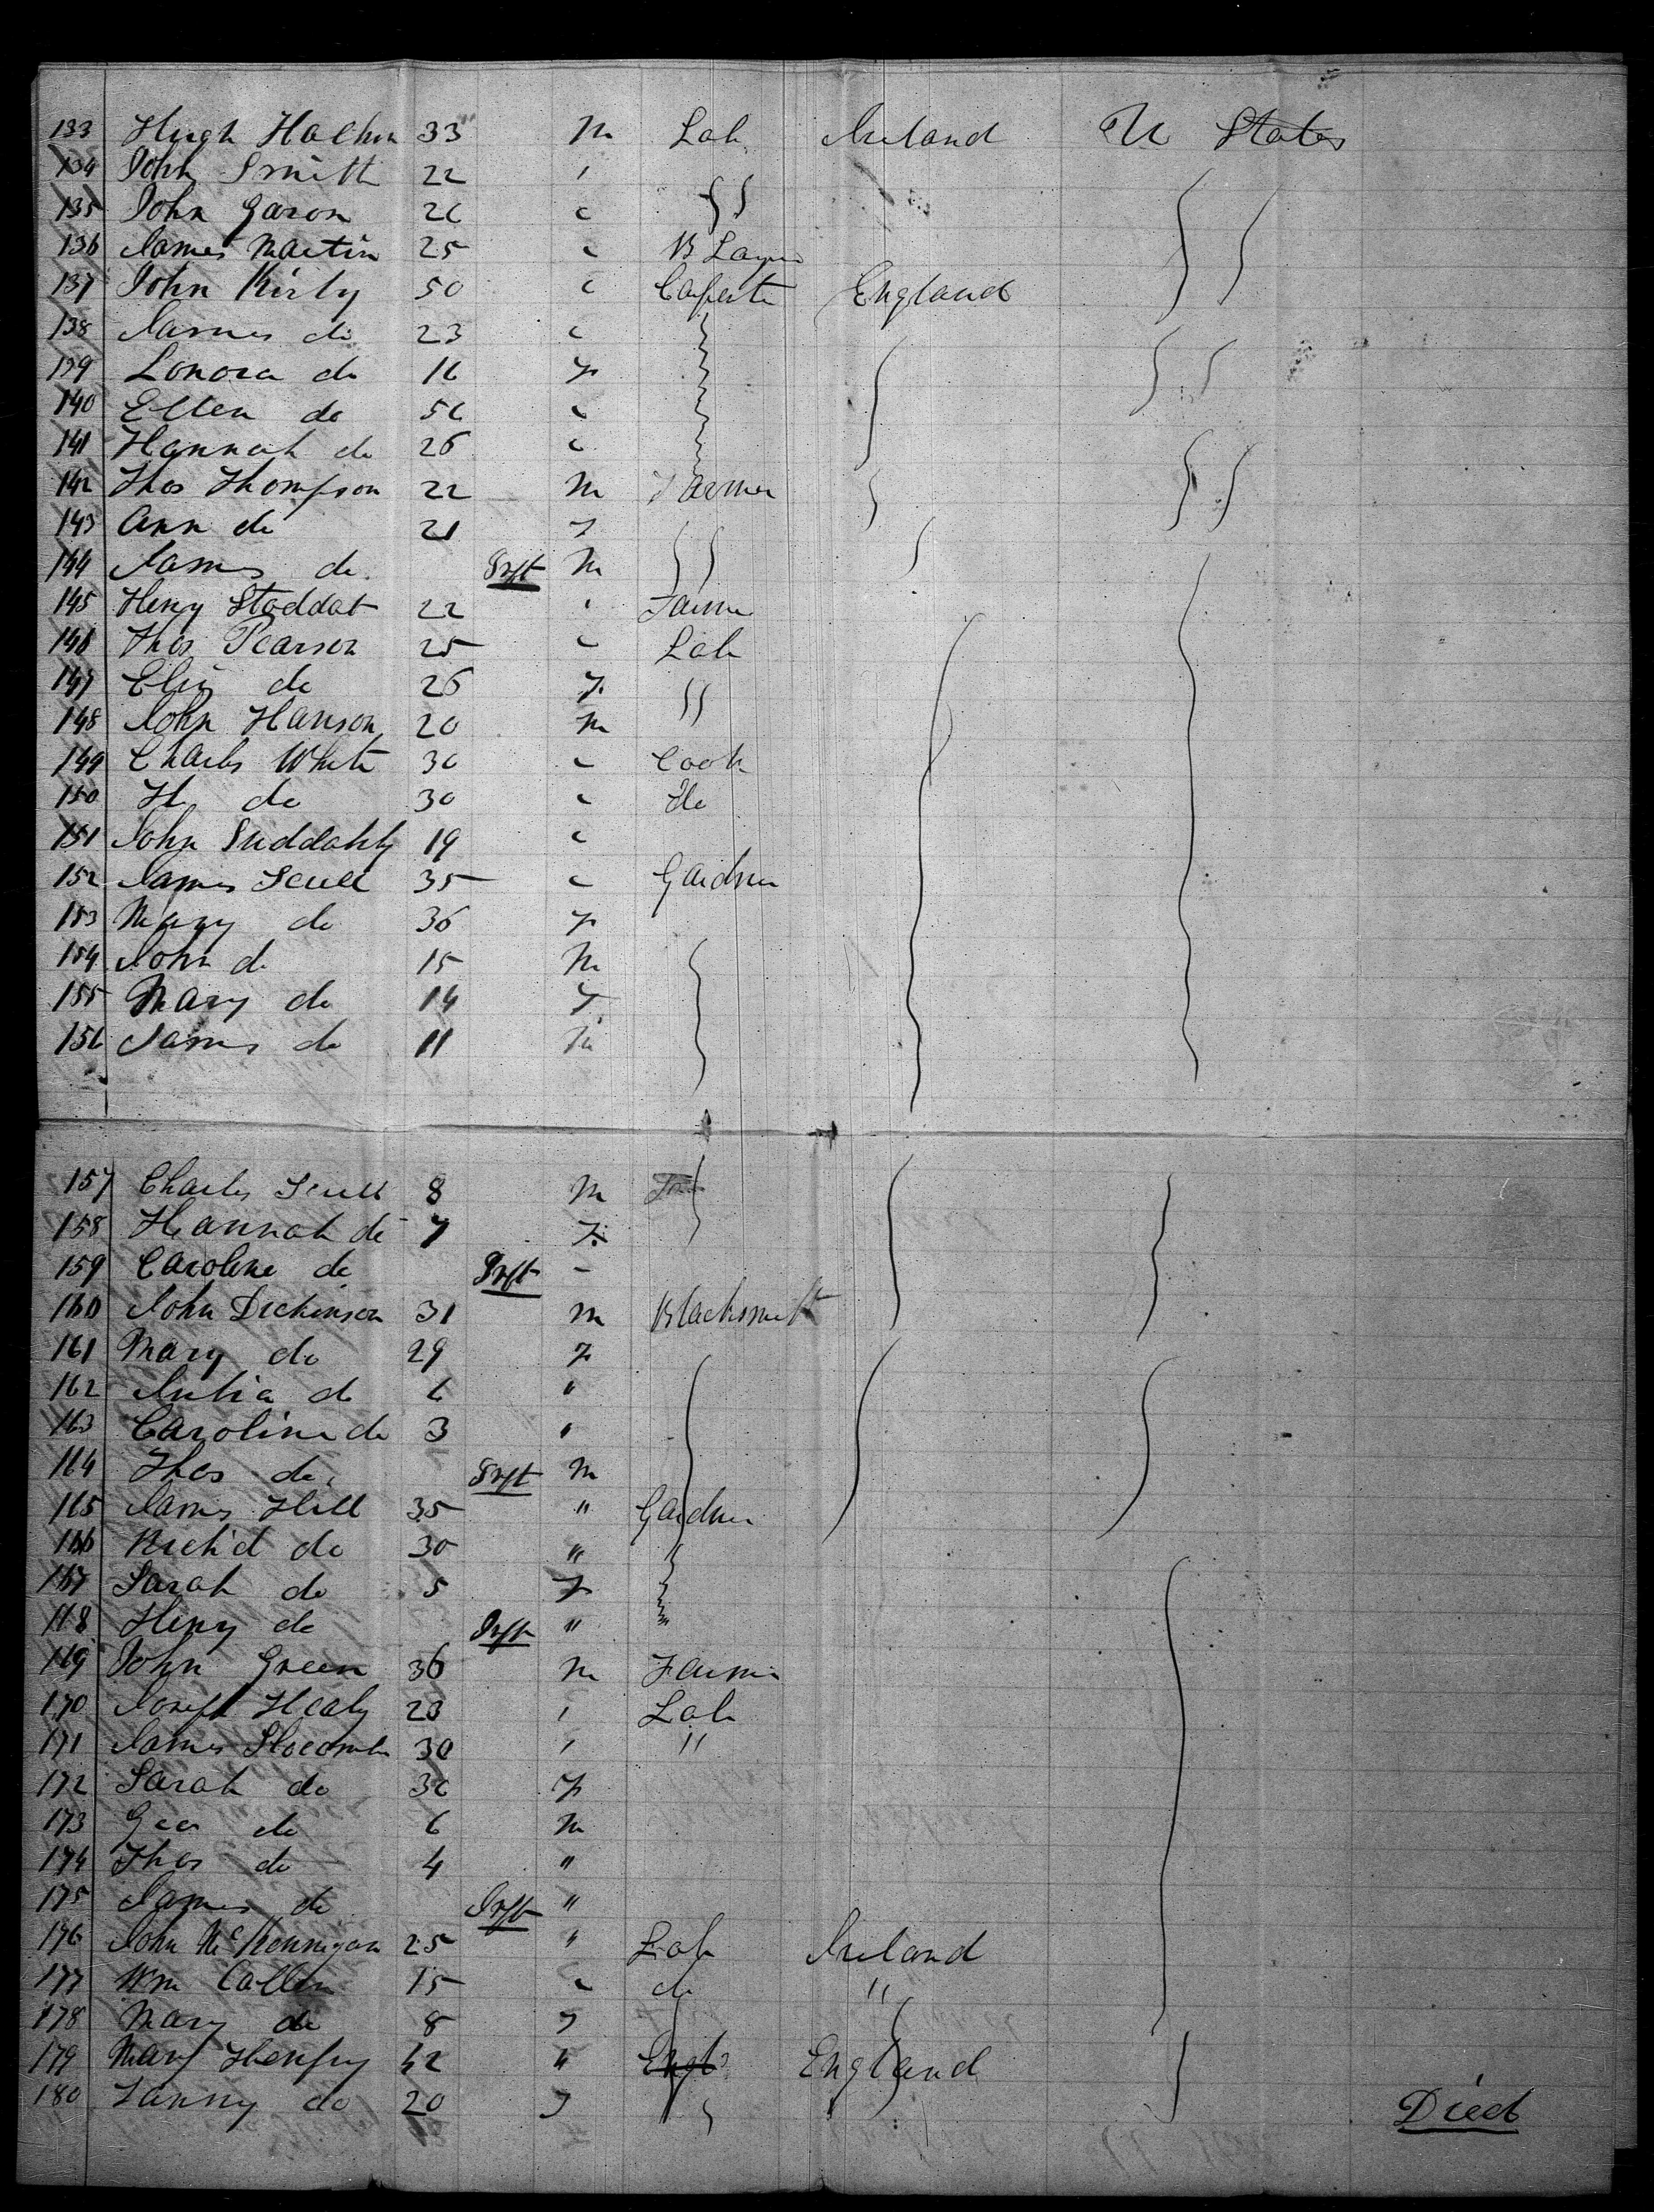 133 Hugh 33 M Lab Ireland U States
134 John Smith 22 "
135 John Garon 26 "
136 James Martin 25 " B Layer
137 John Kirby 50 " Carpentr England
138 James do 23 "
139 Lonora do 16 F
140 Ellen do 56 "
141 Hannah do 26 "
142 Thos Thompson 22 M Farmer
143 Ann do 21 F
144 James do Inft M
145 Henry Stoddat 22 " Farmer
146 Thos Pearson 25 " Lab
147 Eliz do 26 F
148 John Hanson 20 M
149 Charles White 30 " Cook
150 Hy do 30 " do
151 John 19 "
152 James Scull 35 " Gardner
153 Mary do 36 F
154 John do 15 M
155 Mary do 14 F
156 James do 11 M
157 Charles Scull 8 M
158 Hannah do 7 F
159 Caroline do Inft "
160 John Dickinson 31 M Blacksmith
161 Mary do 29 F
162 Julia do 6 "
163 Caroline do 3 "
164 Thos do Inft M
165 James Hill 35 " Gardner
166 Rich'd do 30 "
167 Sarah do 5 F
168 Henry do Inft "
169 John Green 36 M Farmer
170 Joseph Healy 23 " Lab
171 James Slocomb 30 " "
172 Sarah do 30 F
173 Geo do 6 M
174 Thos do 4 "
175 James do Inft "
176 John 25 " Lab Ireland
177 Wm Cullen 15 " do "
178 Mary do 8 F
179 Mary 42 " England
180 Fanny do 20 F Died